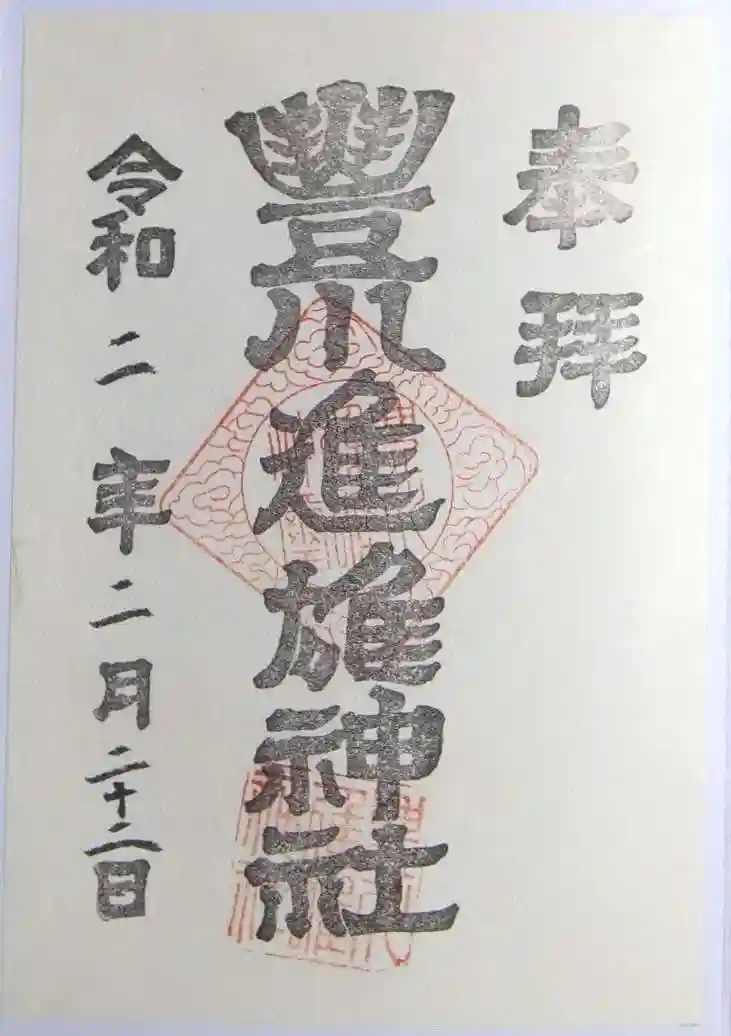 奉拝
豊川進雄神社
令和二年二月二十二日